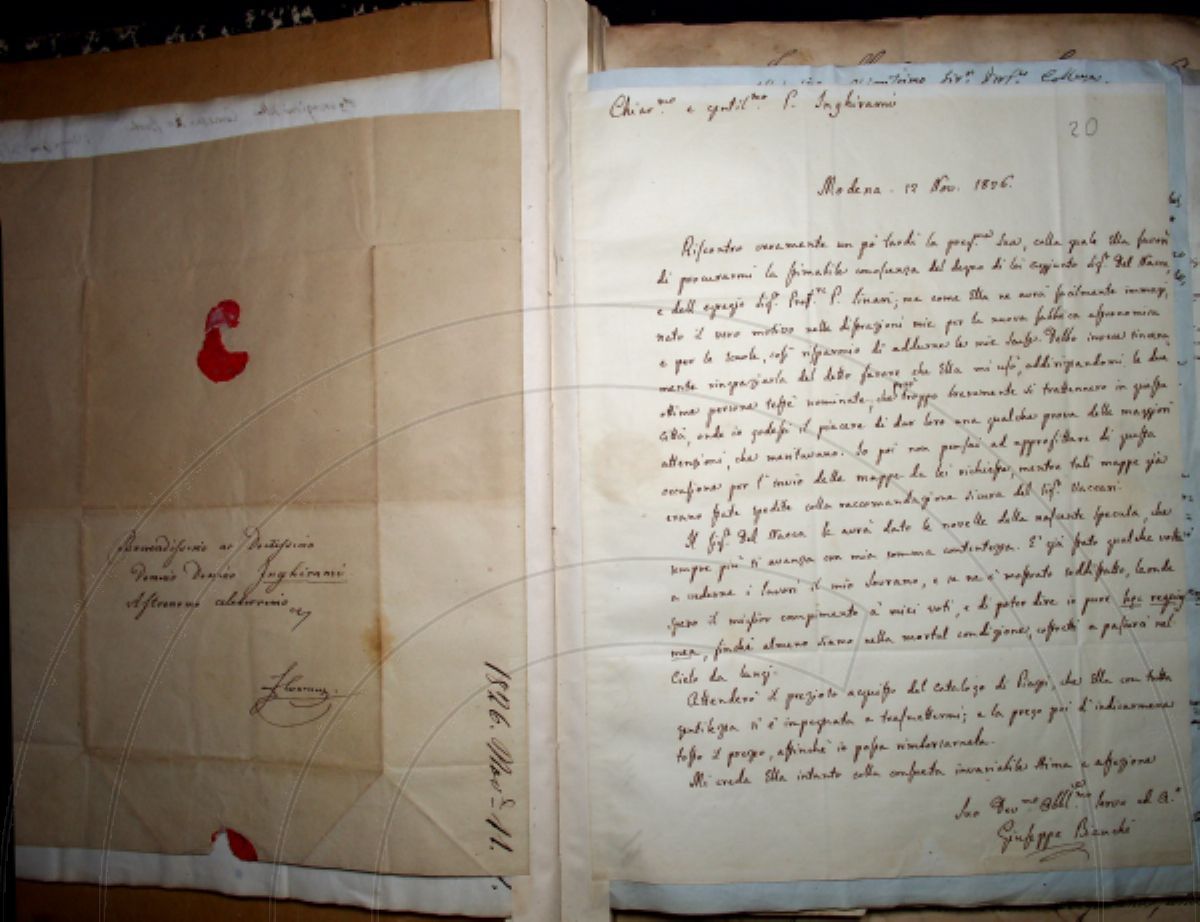 Reverendissimo ac Doctissimo
Domino Domino Inghirami
Astronomo celeberrimo
Florentiam
1826. Nov. 11.
Chiar.mo e gentil.mo P. Inghirami
20
Modena. 12 Nov. 1826.
Riscontro veramente un pò tardi la preg.ma Sua, colla quale Ella favorì
di procurarmi la stimabile conoscenza del degno di lei aggiunto Sig.r Del Nacca,
e dell'egregio Sig.r Prof.re P. Linari; ma come Ella ne avrà facilmente immagi,
nato il vero motivo nelle distrazioni mie per la nuova fabbrica astronomica
e per le scuole, così risparmio di addurne le mie scuse. Debbo invece sincera,
mente ringraziarla del detto favore che Ella mi usò, addirizzandomi le due
ottime persone testè nominate, che però troppo brevemente si trattennero in questa
Città, onde io godessi il piacere di dar loro una qualche prova delle maggiori
attenzioni, che meritavano. Io poi non pensai ad approfittare di questa
occasione per l'invio delle mappe da lei richieste, mentre tali mappe già
erano state spedite colla raccomandazione sicura del Sig.r Vaccari.
Il Sig.r Del Nacca le avrà dato le novelle della nascente specula, che
sempre più si avanza con mia somma contentezza. E' già stato qualche volta
a vederne i lavori il mio Sovrano, e se ne è mostrato soddisfatto, laonde
spero il miglior compimento a' miei voti, e di poter dire io pure hęc requies
mea, finchè almeno siamo nella mortal condizione, costretti a pascerci nel
Cielo da lungi.
Attenderò il prezioso acquisto del catalogo di Piazzi, che Ella con tutta
gentilezza si è impegnata a trasmettermi; e la prego poi d'indicarmene
tosto il prezzo, affinchè io possa rimborsarnela.
Mi creda Ella intanto colla consueta invariabile stima e affezione
Suo Dev.mo Obbl.mo Servo ed A.o
Giuseppe Bianchi